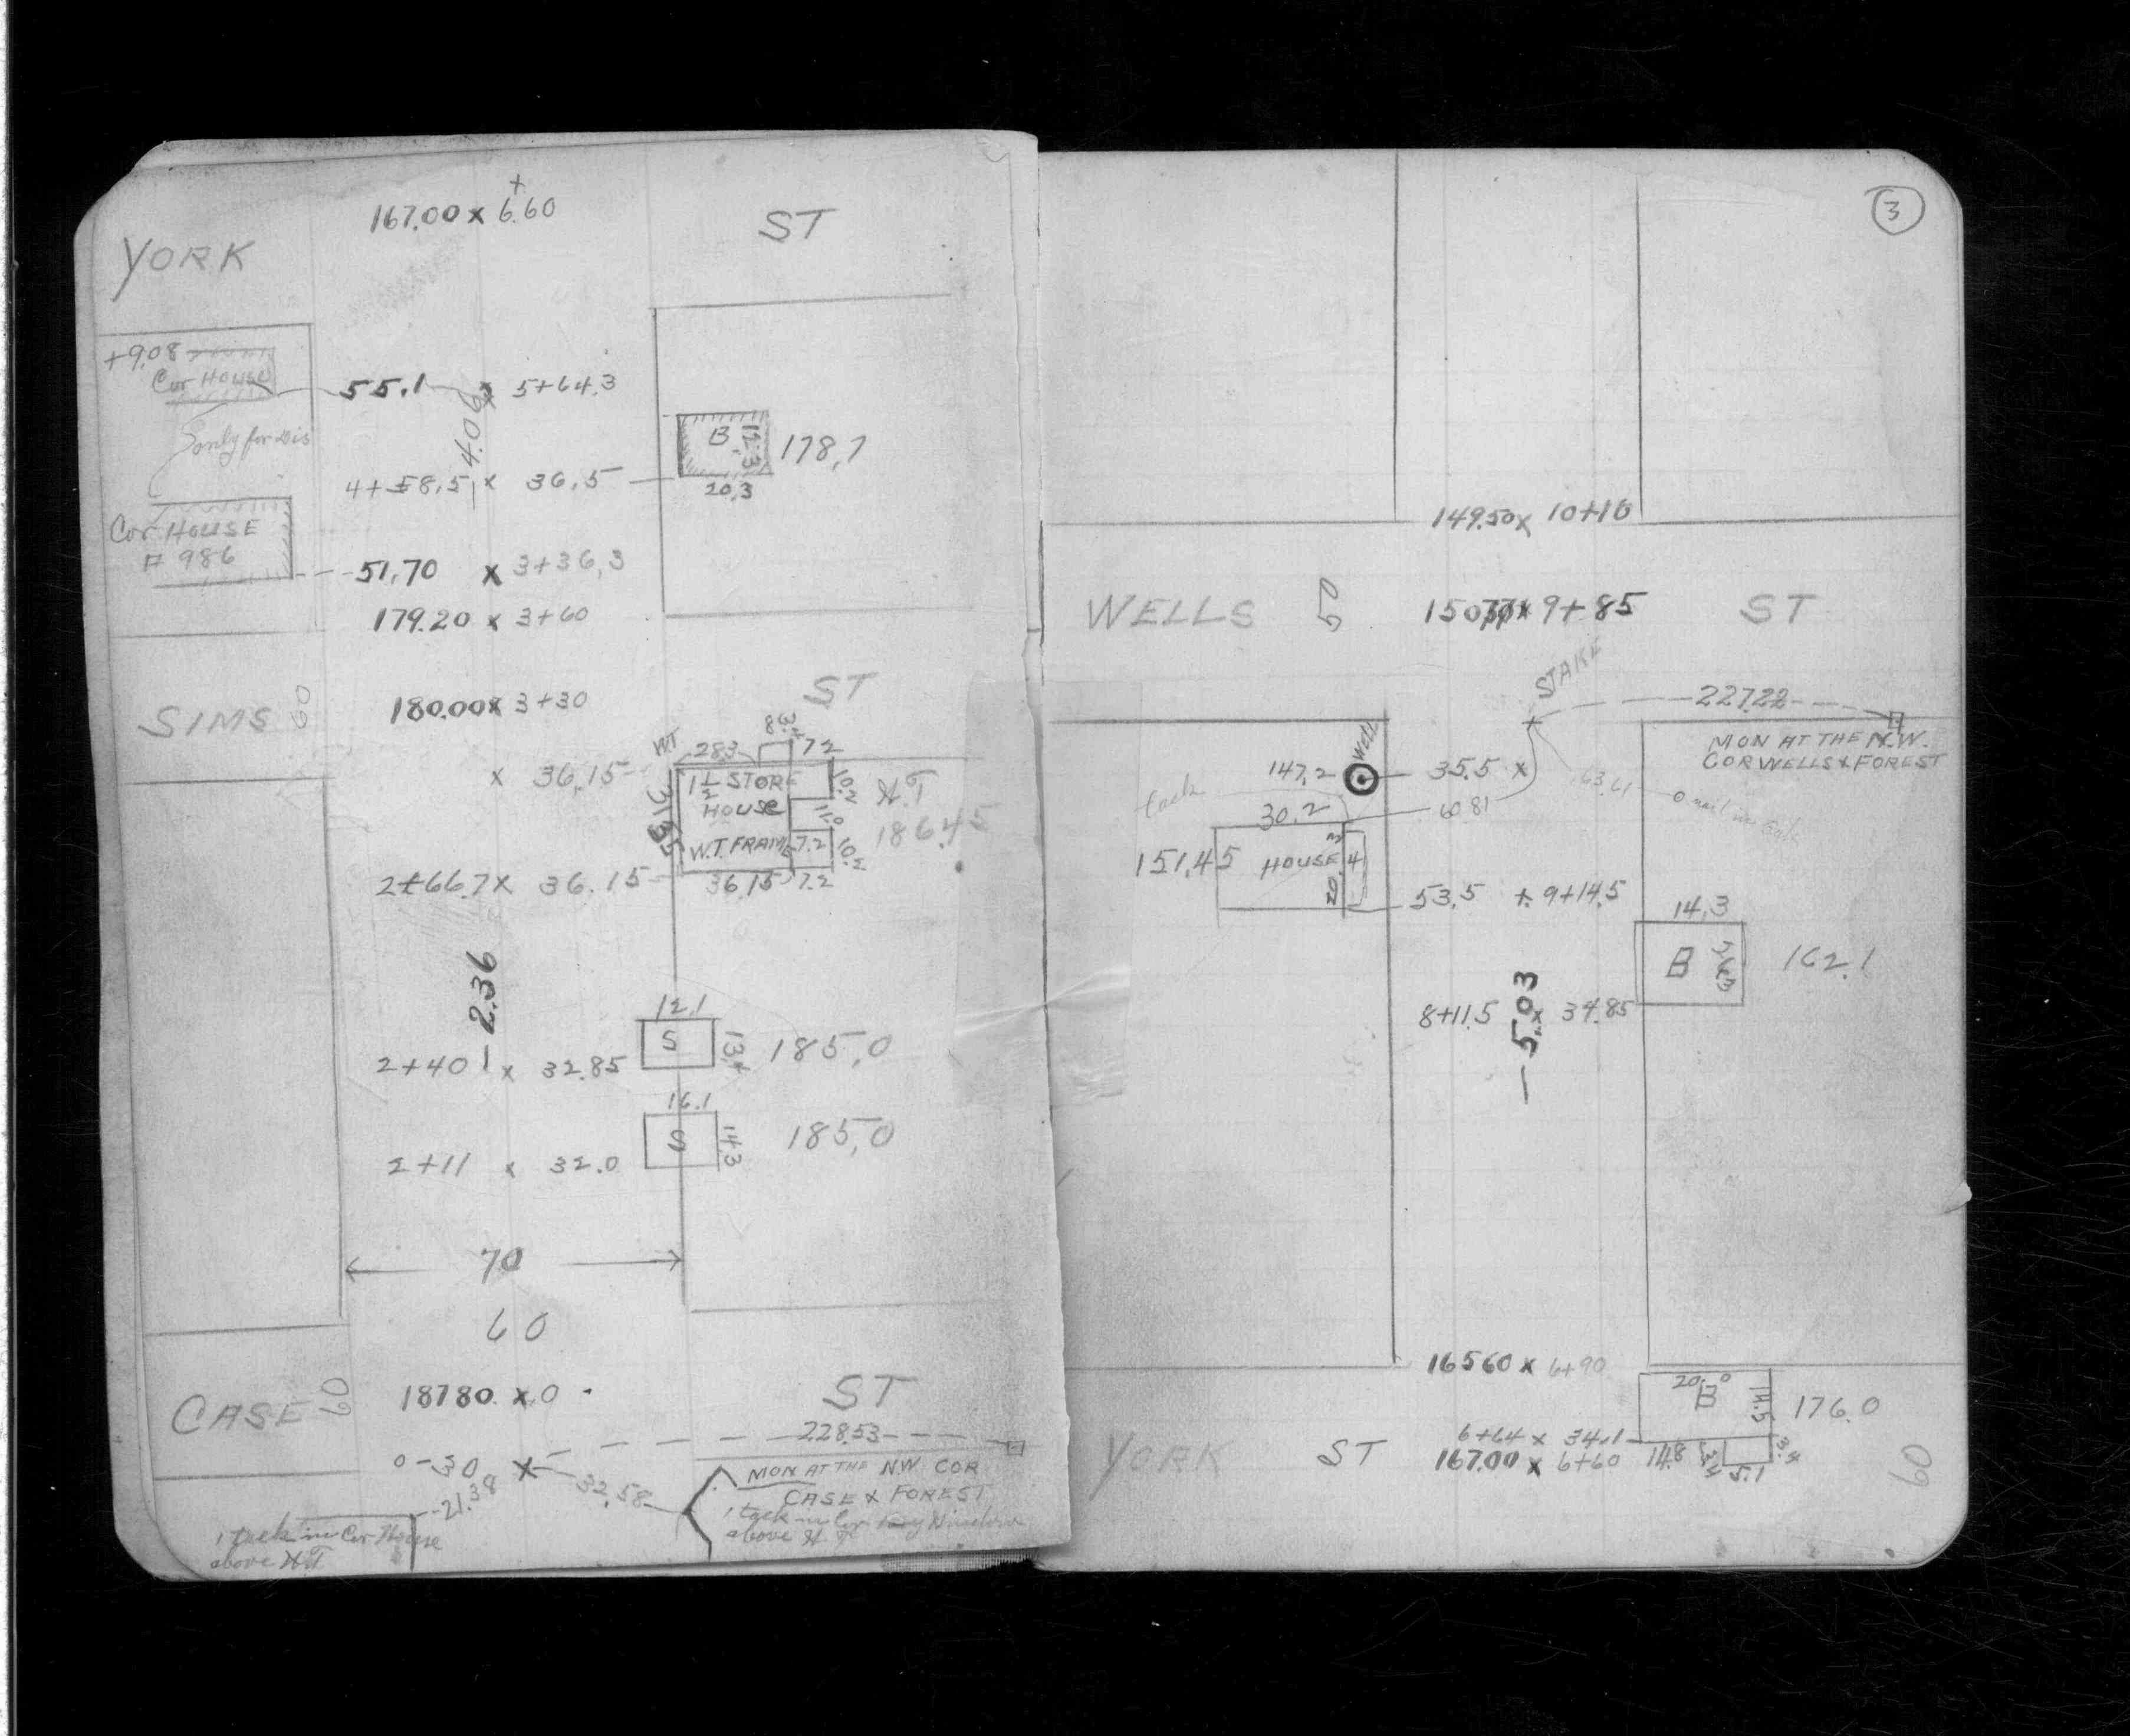 +
167.00 x 6.60
YORK ST
+9.08
Cor HOUSE
55.1 x 5+64.3
only for Dis
4.09
B 12.3 178.7
4+58.5 x 36.5
20.3
Cor HOUSE
# 986
51.70 x 3+36.3
179.20 x 3+60
SIMS 60 ST
180.00 x 3+30
WT 28.3 3.4 8 7.2
x 36.15
1 1/2 STORE
HOUSE
W.T. FRAME
31.35
10.2
11.0
7.2
10.2
H.T
186.45
2+66.7 x 36.15
36.15 7.2
2.36
12.1
S 13.4 185.0
2+40 x 32.85
16.1
S 14.3 185.0
2+11 x 32.0
70
60
CASE 60 ST
187.80 x 0
228.53
0-30 x
MON AT THE NW COR
CASE & FOREST
32.58
21.38
1 tack in Cor House
above HT
1 tack in Cor Window
above H.T
3
149.50 x 10+10
WELLS 60 ST
x 9+85
STAKE
227.22
MON AT THE N.W.
COR WELLS & FOREST
WELL
147.2 35.5 x
tack
30.2
60.81
63.61
nail in Gate
151.45 HOUSE 4
53.5 + 9+14.5
14.3
B 162.1
8+11.5 x 34.85
5.03
165.60 x 6+90
20.0
B 14.5 176.0
6+64 x 34.1
YORK ST
167.00 x 6+60
14.8 3.4 5.1 3.4
60